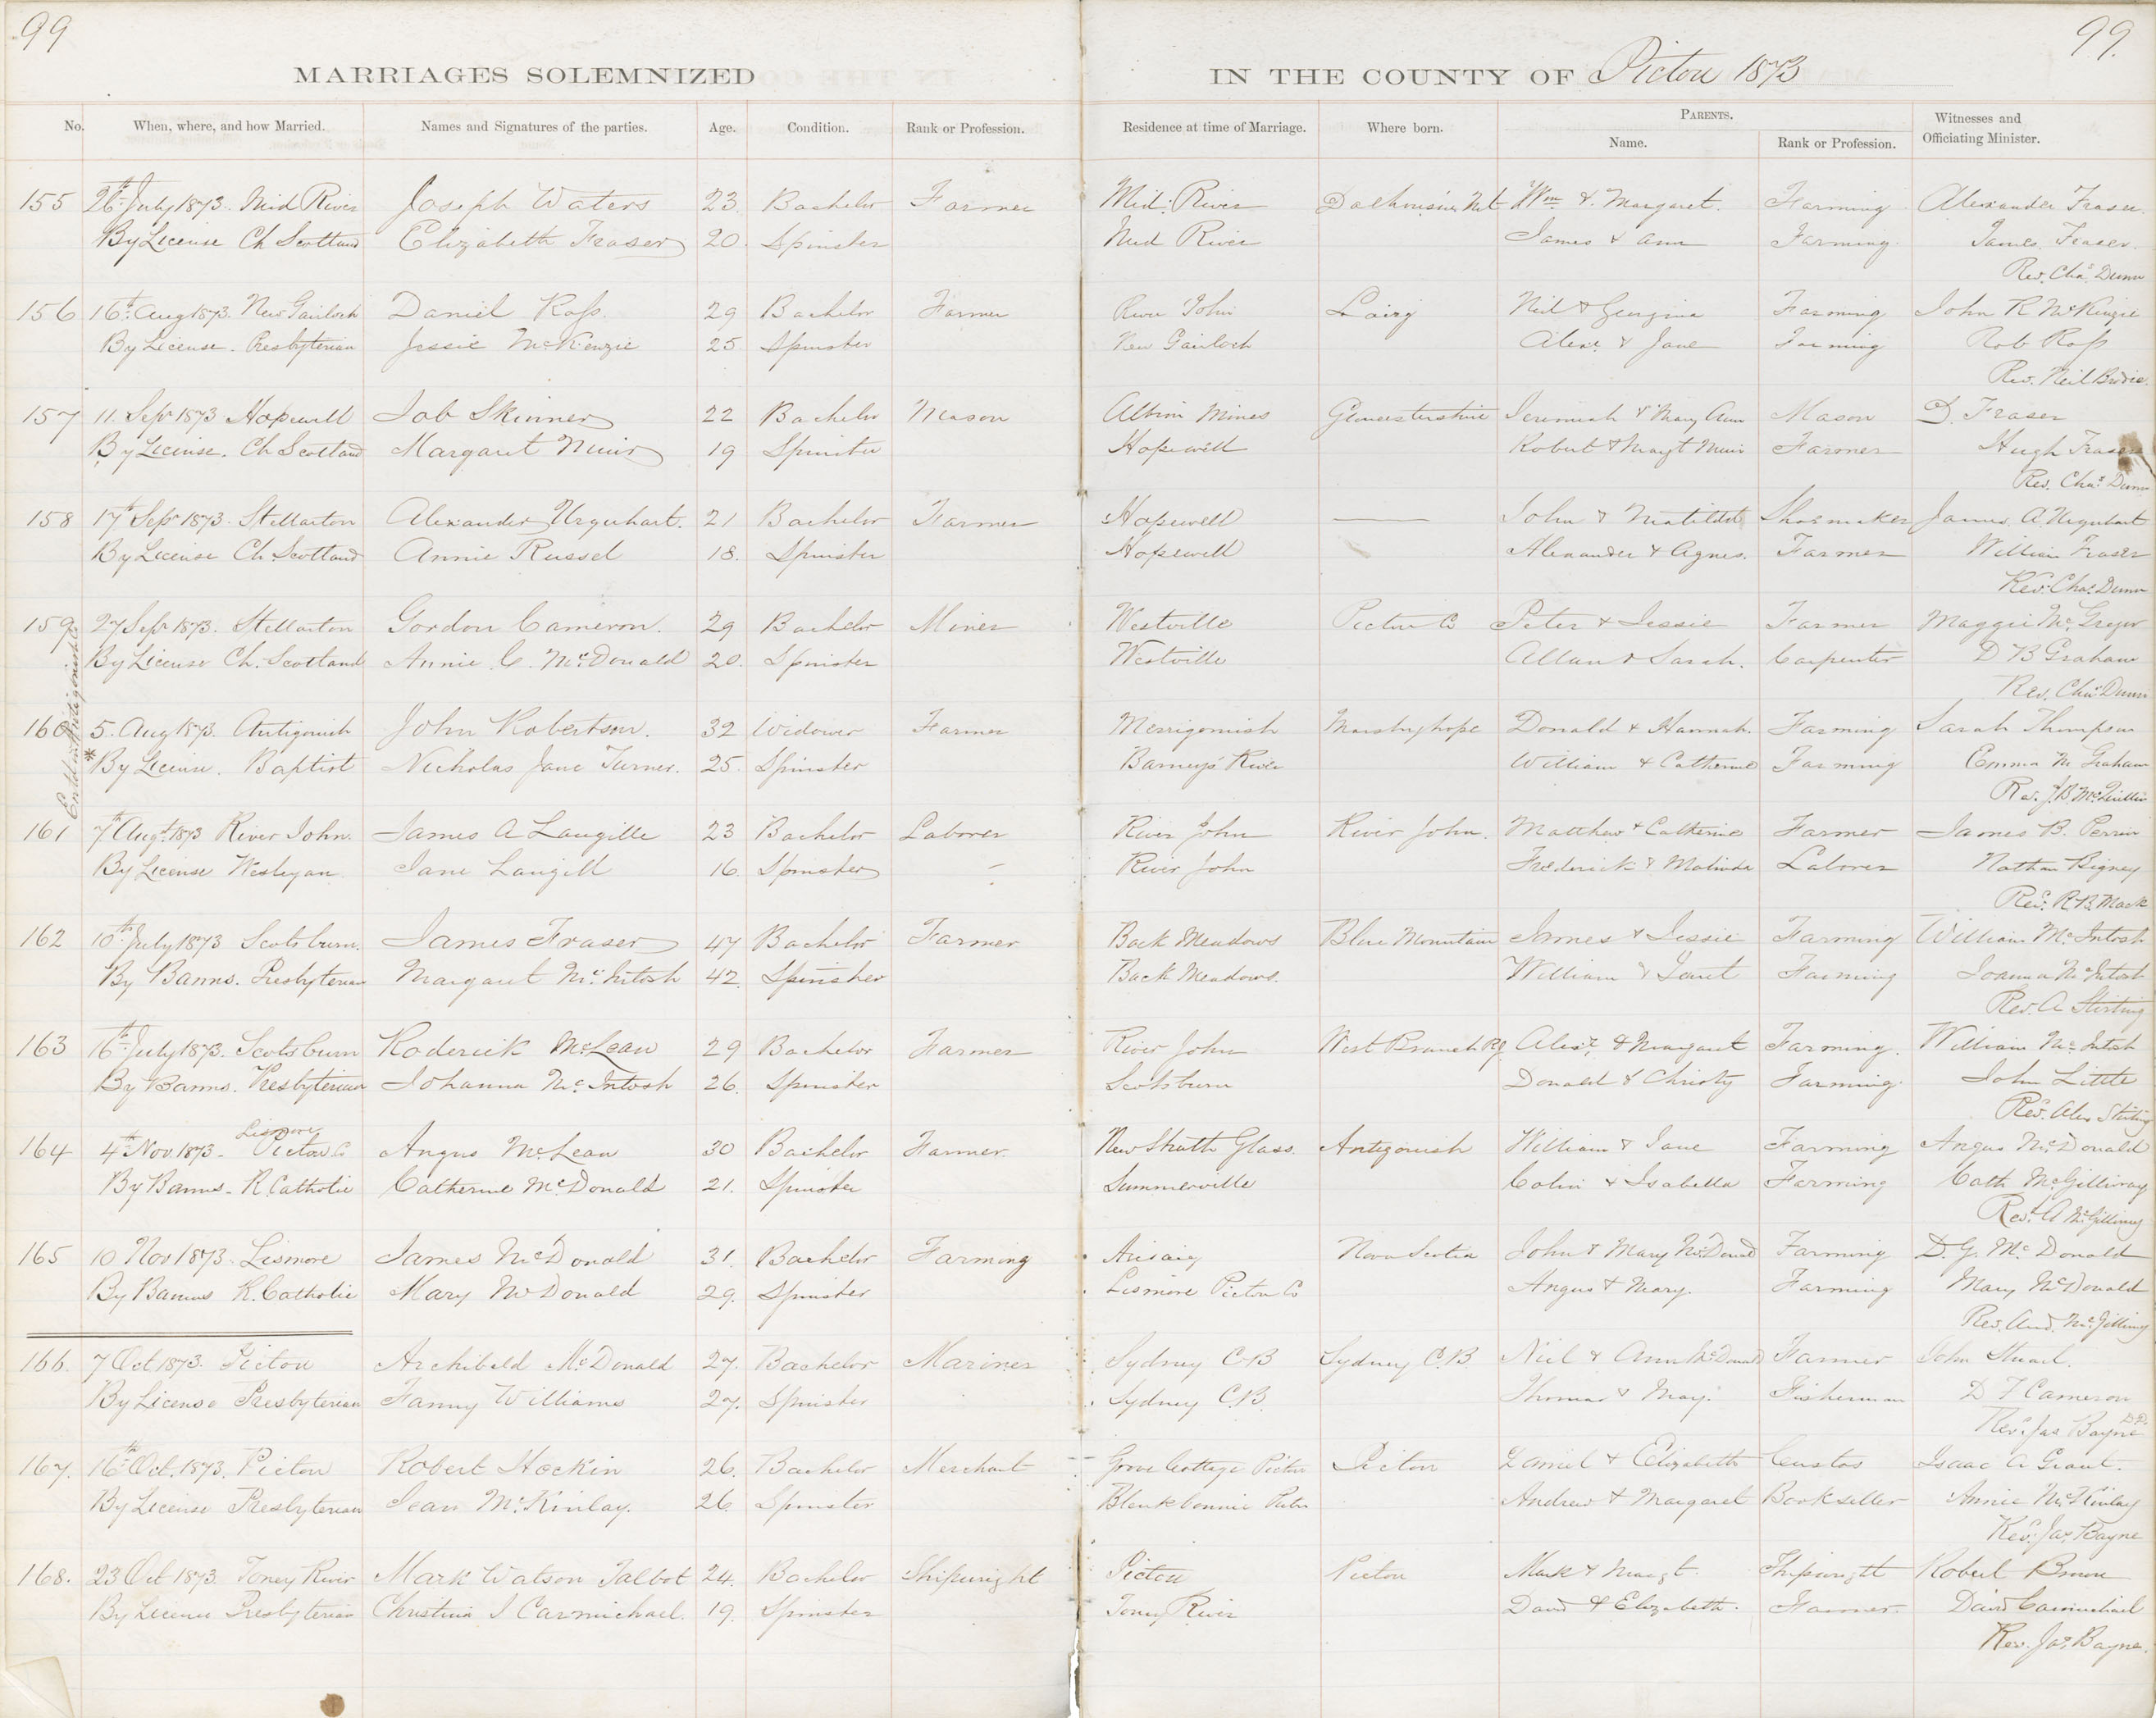 99
99.
MARRIAGES SOLEMNIZED IN THE COUNTY OF Pictou 1873
No. When, where, and how Married. Names and Signatures of the parties. Age. Condition. Rank or Profession. Residence at time of Marriage. Where born. PARENTS. Name. Rank or Profession. Witnesses and Officiating Minister.
155 26th July 1873. Mid River Joseph Waters 23 Bachelor Farmer Mid. River Dalhousie Wm & Margaret. Farming Alexander Fraser.
By License Ch Scotland Elizabeth Fraser 20. Spinster Mid River James & Ann Farming. James. Fraser.
Rev. Chas. Dunn
156 16th Aug 1873. New Gairloch Daniel Ross. 29 Bachelor Farmer River John Lairg Neil & Georgina Farming John R McKinzie
By License. Presbyterian Jessie McKenzie 25. Spinster New Gairloch Alexr. & Jane Farming Rob Ross
Rev. Neil Brodie.
157 11. Sepr 1873 Hopewell Job Skinner 22 Bachelor Mason Albion Mines Gloucestershire Jeremiah & Mary Ann Mason D. Fraser
By License. Ch Scotland Margaret Muir 19 Spinster Hopewell Robert & Margt Muir Farmer Hugh Fraser
Rev. Chas. Dunn
158 17th Sepr 1873. Stellarton Alexander Urquhart. 21 Bachelor Farmer Hopewell — John & Matilda Shoemaker James. A. Urquhart
By License Ch. Scotland Annie Russel 18. Spinster Hopewell Alexander & Agnes. Farmer William Fraser
Rev. Chas. Dunn
159 27 Sepr 1873. Stellarton Gordon Cameron. 29 Bachelor Miner Westville Pictou Co Peter & Jessie Farmer Maggie McGregor
By License Ch. Scotland Annie C. McDonald 20. Spinster Westville Allan & Sarah. Carpenter D B Graham
Rev. Chas. Dunn
160 5. Aug 1873. Antigonish John Robertson. 32 Widower Farmer Merrigomish Marshyhope Donald & Hannah. Farming Sarah Thompson
* By License. Baptist Nicholas Jane Turner. 25. Spinster Barneys River William & Catherine Farming Emma M Graham
Rev. J. B.
161 7th Augt. 1873 River John. James A Langille 23 Bachelor Laborer River John River John. Matthew & Catherine Farmer James B. Perrin
By License Wesleyan. Jane Langill 16. Spinster - River John Frederick & Malinda Laborer Nathan Bigney
Revd. R. B. Mack
162 10th July 1873 Scotsburn. James Fraser 47 Bachelor Farmer Back Meadows Blue Mountain James & Jessie Farming William McIntosh
By Banns. Presbyterian Margaret McIntosh 42. Spinster Back Meadows. William & Janet Farming Joanna McIntosh
Rev. A Stirling
163 16th July 1873. Scotsburn Roderick McLean 29 Bachelor Farmer River John West Branch RJ Alexr. & Margaret Farming. William McIntosh
By Banns. Presbyterian Johanna McIntosh 26. Spinster Scotsburn Donald & Christy Farming. John Little
Revd. Alex Stirling
Lismore
164 4th Nov. 1873. Pictou Co Angus McLean 30 Bachelor Farmer. New Strath Glass. Antigonish William & Jane Farming Angus McDonald
By Banns. R. Catholic Catherine McDonald 21. Spinster Summerville Colin & Isabella Farming Cath McGillivray
Revd. A McGillivray
165 10 Nov 1873. Lismore James McDonald 31. Bachelor Farming Arisaig Nova Scotia John & Mary McDonald Farming D. G. McDonald
By Banns R. Catholic Mary McDonald 29. Spinster Lismore Pictou Co Angus & Mary. Farming Mary McDonald
Rev. And. McGillivray
166. 7 Oct 1873. Pictou Archibald McDonald 27. Bachelor Mariner Sydney C-B Sydney C.B. Niel & Ann McDonald Farmer John Stuart.
By License Presbyterian Fanny Williams 27. Spinster Sydney C.B. Thomas & Mary. Fisherman D F Cameron
Revd. Jas Bayne D.D.
167. 16th Oct. 1873. Pictou Robert Hockin 26. Bachelor Merchant Grove Cottage Pictou Pictou Daniel & Elizabeth Custos Isaac A Grant.
By License Presbyterian Jean McKinlay. 26. Spinster Blenkbonnie Pictou Andrew & Margaret Bookseller Annie McKinlay
Revd. Jas Bayne
168. 23 Oct 1873. Toney River Mark Watson Talbot 24. Bachelor Shipwright Pictou Pictou Mark & Margt. Shipwright Robert Brown
By License Presbyterian Christina J Carmichael. 19. Spinster Toney River David & Elizabeth. Farmer. David Carmichael
Rev. Jas. Bayne.